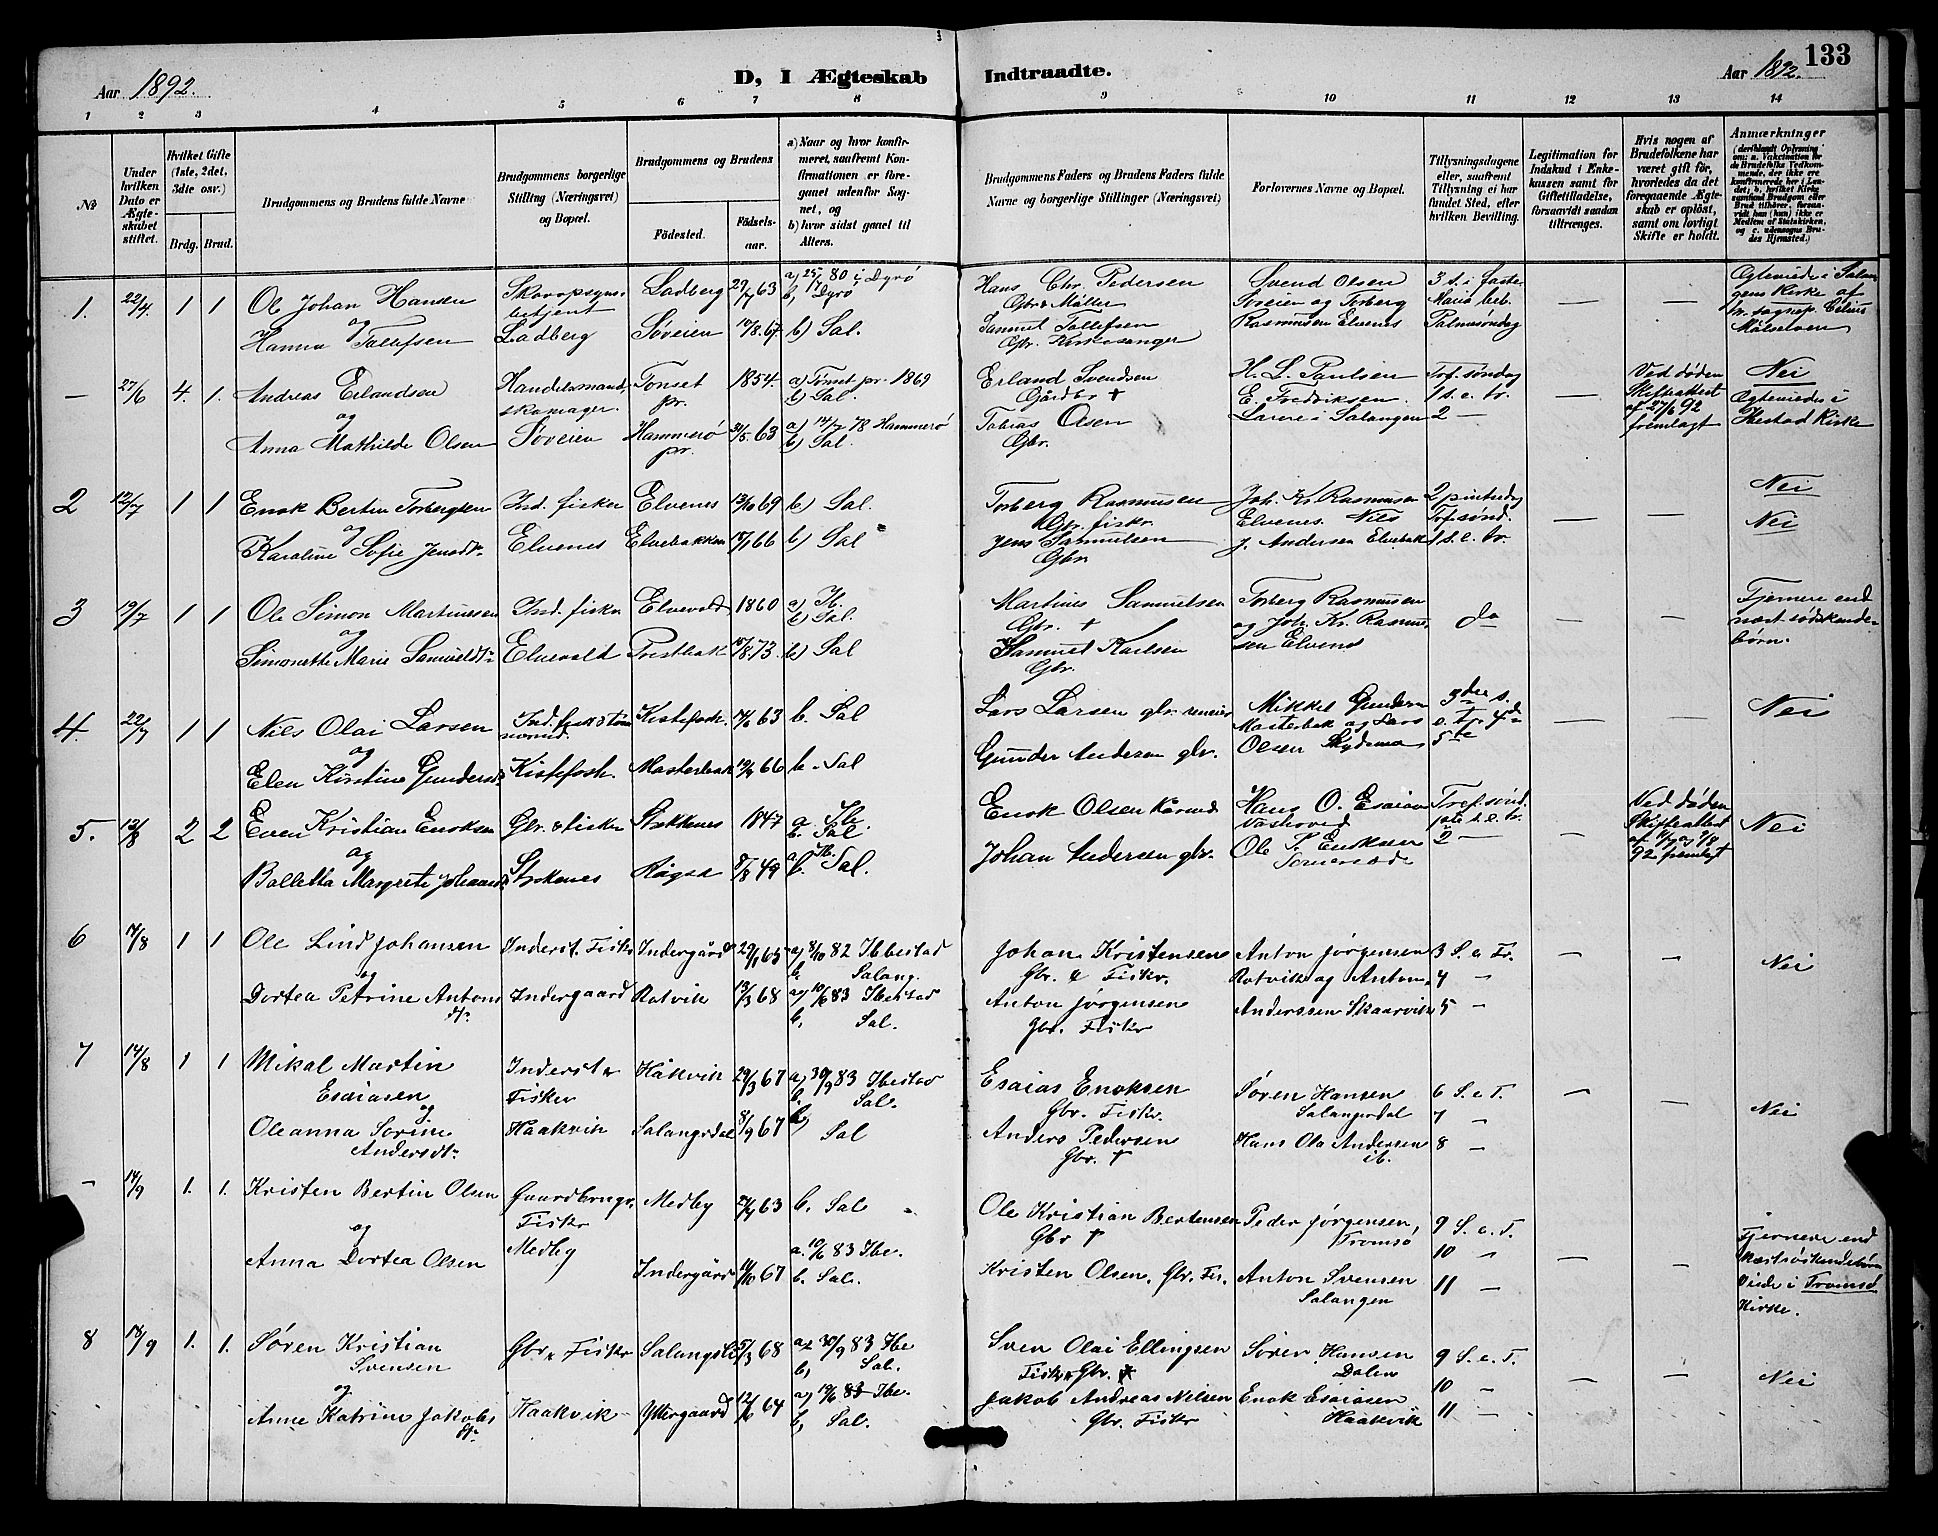 Aar 1892.
D, I Ægteskab Indtraadte.
Aar 1892. 133
1 2 3 4 5 6 7 8 9 10 11 12 13 14
No
Under hvilken Dato er Ægteskabet stiftet.
Hvilket Gifte (1ste, 2det, 3die osv.)
Brdg. Brud.
Brudgommens og Brudens fulde Navne
Brudgommens borgerlige Stilling (Næringsvei) og Bopæl.
Brudgommens og Brudens
Fødested. Fødselsaar.
a) Naar og hvor konfirmeret, saafremt Konfirmationen er foregaaet udenfor Sognet, og
b) hvor sidst gaaet til Alters.
Brudgommens Faders og Brudens Faders fulde Navne og borgerlige Stillinger (Næringsvei)
Forlovernes Navne og Bopæl.
Tillysningsdagene eller, saafremt Tillysning ei har fundet Sted, efter hvilken Bevilling.
Legitimation for Indskud i Enkekassen samt for Giftetilladelse, forsaavidt saadan tiltrænges.
Hvis nogen af Brudefolkene har været gift før, hvorledes da det foregaaende Ægteskab er opløst, samt om lovligt Skifte er holdt.
Anmærkninger
1. 22/4. 1 1 Ole Johan Hansen Skovopsyns- Ladberg 29/7 63 a) 25/7 80 i Dyrø Hans Chr. Pedersen Svend Olsen 3 s. i faste
og betjent b) Dyrø Gbr. & Møller Søveien og Torberg Maria beb. — —
Hanna Tollefsen Ladberg Søveien 10/8. 67. b) Sal. Samuel Tollefsen Rasmussen Elvenes Palmesøndag
Gbr. Kirkesanger
Ægteviede i Salangens Kirke af
Målselven
— 27/6 4. 1. Andreas Erlandsen Handelsmand, Tonset 1854. a) Tønset pr. 1869 Erland Svendsen H. L. Paulsen Tref. søndag — Ved døden Nei
og skomager. pr. b) Sal. Gårdbr † E. Fredriksen. 1 s. e. tr. Skifteattest Ægteviede i
Anna Mathilde Olsen Søveien Hammerø 31/5. 63 a) 14/7 78 Hammerø Tobias Olsen i Salangen 2 — af 27/6 92 Ibestad Kirke
pr. b) Sal. Gbr. fremlagt
2 12/7 1 1 Enok Bertin Torbergsen Ind. fisker Elvenes 13/10 69 b) Sal. Torberg Rasmussen Joh. Kr. Rasmussen 2 pintsedag Nei
og Gbr. fisker. Elvenes. Nils Tref. sønd. — —
Karoline Sofie Jensdtr Elvenes Elvebakken 18/1 66 b) Sal Jens Samuelsen J. Andersen Elvebak 1 s. e. tr. Nei
Gbr.
3 19/7 1 1 Ole Simon Martinussen Ind. fisker Elvevold 1860 a) Ib. b) Sal. Martinus Samuelsen Torberg Rasmussen Fjernere end
og Gbr. † og Joh. Kr. Rasmus- do — — næstsødskende-
Simonette Marie Samueldtr Elvevold Prestbak 18/8. 73. b) Sal Samuel Karlsen sen Elvenes børn.
Gbr.
4. 22/7 1 1 Nils Olai Larsen Kistefosh. 63 b. Sal Lars Larsen gbr. Mikkel Gundersen 3die s. — — Nei
og Masterbak og Lars e. tr. 4de
Elen Kirstine Gundersdtr Kistefosh. Masterbak 19/9 66 b. Sal Gunder Andersen gbr. Olsen 5te
5. 12/8 2 2 Even Kristian Enoksen Gbr. & fisker Strokkenes 1847 a. Ibe. b. Sal Enok Olsen Hans O. Esaiasen Tref. sønd. — Ved døden Nei
og 1ste s. e. tr. Skifteattest
Balletta Margrete Johansdtr Strokenes Rågsa 8/8 49 a. Ib. b. Sal. Johan Andersen gbr. Ole P. Enoksen 2 — 92 fremlagt
6 17/8 1 1 Ole Lind Johansen Inderst. Fisker Indergård 29/1 65 a) 8/10 82 Ibbestad Johan Kristensen Anton Jørgensen 3 S. e Tr. — — Nei
og b. Salang. Gbr. & Fisker. Rotvik og Anton 4 —
Dortea Petrine Antons Indergaard Rotvik 13/3 68 a) 10/6 83 Ibestad Anton Jørgensen Anderssen Skaarvik 5 —
dtr b. Sal. Gbr. Fisker
7 14/8 1 1 Mikal Martin Inderst & Håkvik 29/3 67 a) 30/9 83 Ibestad Esaias Enoksen Søren Hansen 6 S. e T. — — Nei
Esaiasen Fisker b. Sal. Gbr. Fisker. Salangsdal 7 —
og
Oleanna Sorine Haakvik Salangsdal 8/9 67 b) Sal Anders Pedersen Hans Ola Andersen 8 —
Andersdtr Gbr. † ib.
— 14/9 1. 1. Kristen Bertin Olsen Gaardbruger Medby 63 b. Sal Ole Kristian Bertensen Peder Jørgensen, 9 S. e. T. — — Fjernere end
og Fisker Gbr † Tromsø 10 —
Anna Dortea Olsen Medby Indergård 14/10 67 a. 10/6 83 Ibe. b. Sal. Kristen Olsen. Gbr. Fis. Anton Svensen 11 — Viede i Tromsø
Salangen Kirke.
8 18/9 1. 1. Søren Kristian Gbr. Fisker Salangsli 5/3 68 a) 30/9 83 Ibe Sven Olai Ellingsen Søren Hansen 9 S. e. T. — — Nei
Svensen b) Sal. Fisker Gbr. Dalen
og 10 —
Anne Katrine Jakobs Haakvik Yttergaard 12/6 64 a) 10/6 83 Ibe. Jakob Andreas Nilsen Enok Esaiasen 11 —
dtr b) Sal. Gbr. Fisker Haakvik